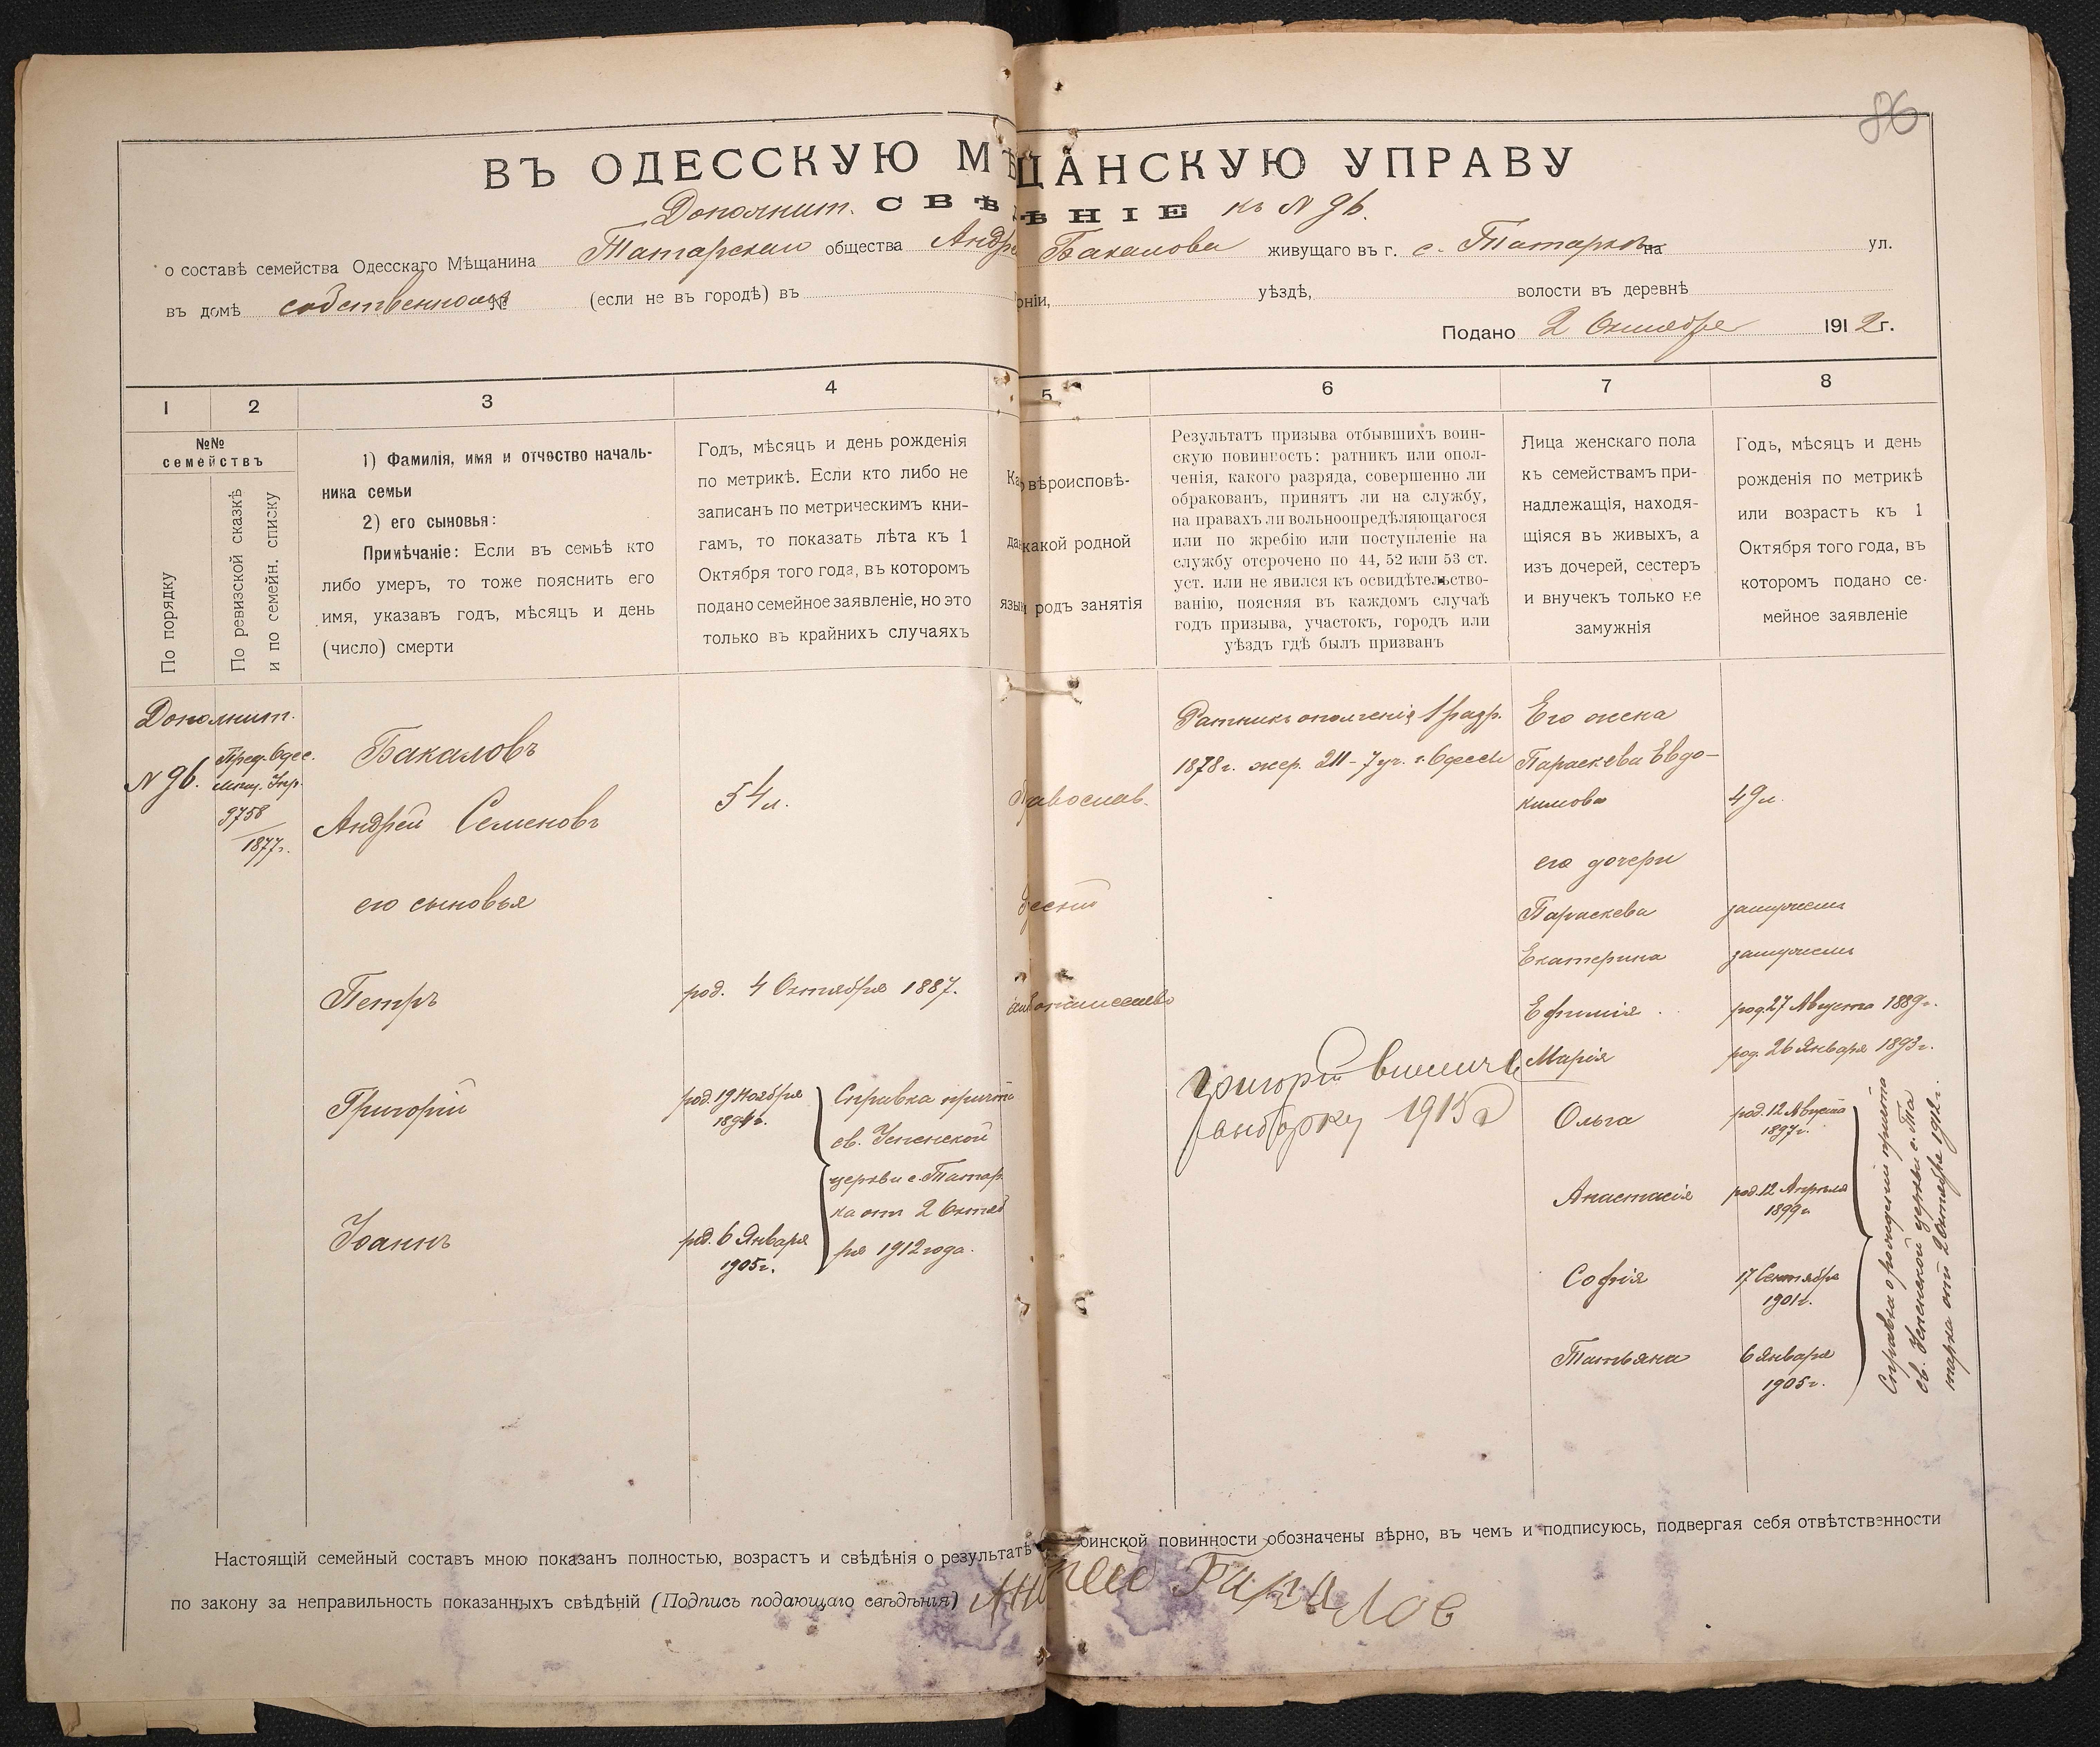 86
ВЪ ОДЕССКУЮ МѢЩАНСКУЮ УПРАВУ
Дополнит. СВѢДѢНІЕ къ № 96.
о составѣ семейства Одесскаго Мѣщанина Татарскаго общества Андрея Бакалова живущаго въ г. с. Татарка на ул.
въ домѣ собственномъ № (если не въ городѣ) въ рніи, уѣздѣ, волости въ деревнѣ
Подано 2 Октября 1912 г.
1 2 3 4 5 6 7 8
№№ семействъ
По порядку
По ревизской сказкѣ и по семейн. списку
1) Фамилія, имя и отчество началь-
ника семьи
2) его сыновья:
Примѣчаніе: Если въ семьѣ кто
либо умеръ, то тоже пояснить его
имя, указавъ годъ, мѣсяцъ и день
(число) смерти
Годъ, мѣсяцъ и день рожденія
по метрикѣ. Если кто либо не
записанъ по метрическимъ кни-
гамъ, то показать лѣта къ 1
Октября того года, въ которомъ
подано семейное заявленіе, но это
только въ крайнихъ случаяхъ
вѣроисповѣ-
какой родной
родъ занятія
Результатъ призыва отбывшихъ воин-
скую повинность: ратникъ или опол-
ченія, какого разряда, совершенно ли
обракованъ, принятъ ли на службу,
на правахъ ли вольноопредѣляющагося
или по жребію или поступленіе на
службу отсрочено по 44, 52 или 53 ст.
уст. или не явился къ освидѣтельство-
ванію, поясняя въ каждомъ случаѣ
годъ призыва, участокъ, городъ или
уѣздъ гдѣ былъ призванъ
Лица женскаго пола
къ семействамъ при-
надлежащія, находя-
щіяся въ живыхъ, а
изъ дочерей, сестеръ
и внучекъ только не
замужнія
Годъ, мѣсяцъ и день
рожденія по метрикѣ
или возрастъ къ 1
Октября того года, въ
которомъ подано се-
мейное заявленіе
Дополнит.
№ 96.
Пред. Одес.
мѣщ. Упр.
9758
1877г.
Бакаловъ
Андрей Семеновъ
54 л.
Православ.
его сыновья
Русскій
Петръ
род. 4 Октября 1887.
Григорій
род. 19 Ноября
1894г.
Іоаннъ
род. 6 Января
1905г.
Справка причта
св. Успенской
церкви с. Татар
ка отъ 2 Октяб
ря 1912 года.
хлѣбопашество
Ратникъ ополченія 1 разр.
1878г. жер. 211 - 7 уч. г. Одессы
Григорій
1915 г
Его жена
Параскева Евдо-
кимова 49 л.
его дочери
Параскева замужемъ
Екатерина замужемъ
Ефимія род. 27 Августа 1889г.
Марія род. 26 Января 1893г.
Ольга род. 12 Августа
1897г.
Анастасія род. 12 Апрѣля
1899г.
Софія 17 Сентября
1901г.
Татьяна 6 Января
1905г.
Справка о рожденіи причта
св. Успенской церкви с. Та
тарка отъ 2 Октября 1912 г.
Настоящій семейный составъ мною показанъ полностью, возрастъ и свѣдѣнія о результатѣ воинской повинности обозначены вѣрно, въ чемъ и подписуюсь, подвергая себя отвѣтственности
по закону за неправильность показанныхъ свѣдѣній (Подпись подающаго свѣдѣнія) Андрей Бакалов